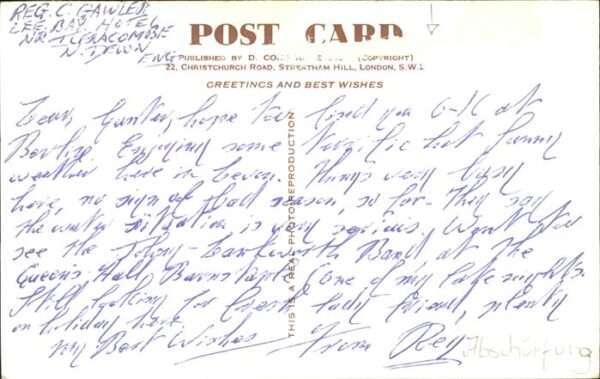 REG. C. GAWLER
LEE BAY HOTEL
NR ILFRACOMBE
N. DEVON
ENG
POST CARD
PUBLISHED BY D. CO (COPYRIGHT)
22, CHRISTCHURCH ROAD, STREATHAM HILL, LONDON, S.W.2
GREETINGS AND BEST WISHES
THIS IS A REAL PHOTO REPRODUCTION
Dear Gunter, hope to find you O-K at
Berlin. Enjoying some terrific hot sunny
weather here in Devon. Things very busy
here, no sign of bad season, so far. They say
the water situation is very serious. Went to
see the Johnny Dankworth Band at the
Queens Hall Barnstaple (one of my late nights.
Still looking for lady friend, plenty
on holiday here.
My Best Wishes
From Reg
Abschürfung